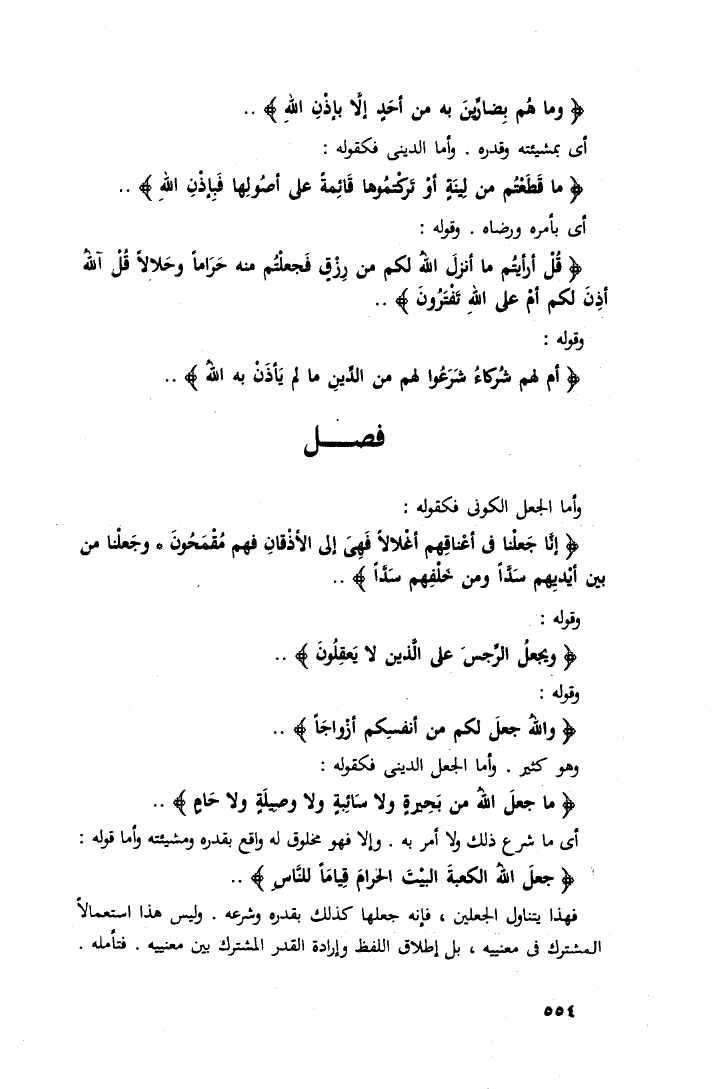 ﴿ وما هُم بِضارِّينَ به من أحَدٍ إلَّا بإذْنِ اللهِ ﴾ ..
أى بمشيئته وقدره . وأما الدينى فكقوله :
﴿ ما قَطَعْتُم من لِينَةٍ أوْ تَرَكْتُمُوها قَائِمةً على أصُولِها فَبِإذْنِ اللهِ ﴾ ..
أى بأمره ورضاه . وقوله :
﴿ قُلْ أرأيتُم ما أنزلَ اللهُ لكم من رِزْقٍ فَجعلْتُم منه حَرَاماً وحَلالاً قُلْ آللهُ
أذِنَ لكم أمْ على اللهِ تَفْتَرُونَ ﴾ ..
وقوله :
﴿ أم لهم شُركاءُ شَرَعُوا لهم من الدِّينِ ما لم يَأذَنْ به اللهُ ﴾ ..
فصـــل
وأما الجعل الكونى فكقوله :
﴿ إنَّا جَعلْنا فى أعْناقِهم أغْلالاً فَهِىَ إلى الأذْقانِ فهم مُقْمَحُونَ * وجَعلْنا من
بين أيْديهم سَدَّاً ومن خَلْفِهم سَدَّاً ﴾ ..
وقوله :
﴿ ويجعلُ الرِّجسَ على الَّذين لا يَعقِلُونَ ﴾ ..
وقوله :
﴿ واللهُ جعلَ لكم من أنفسِكم أزْواجَاً ﴾ ..
وهو كثير . وأما الجعل الدينى فكقوله :
﴿ ما جعلَ اللهُ من بَحِيرةٍ ولا سَائِبةٍ ولا وصِيلَةٍ ولا حَامٍ ﴾ ..
أى ما شرع ذلك ولا أمر به . وإلا فهو مخلوق له واقع بقدره ومشيئته وأما قوله :
﴿ جعلَ اللهُ الكعبةَ البيْتَ الحَرامَ قِيامَاً للنَّاسِ ﴾ ..
فهذا يتناول الجعلين ، فإنه جعلها كذلك بقدره وشرعه . وليس هذا استعمالاً
المشترك فى معنييه ، بل إطلاق اللفظ وإرادة القدر المشترك بين معنييه . فتأمله .
٥٥٤